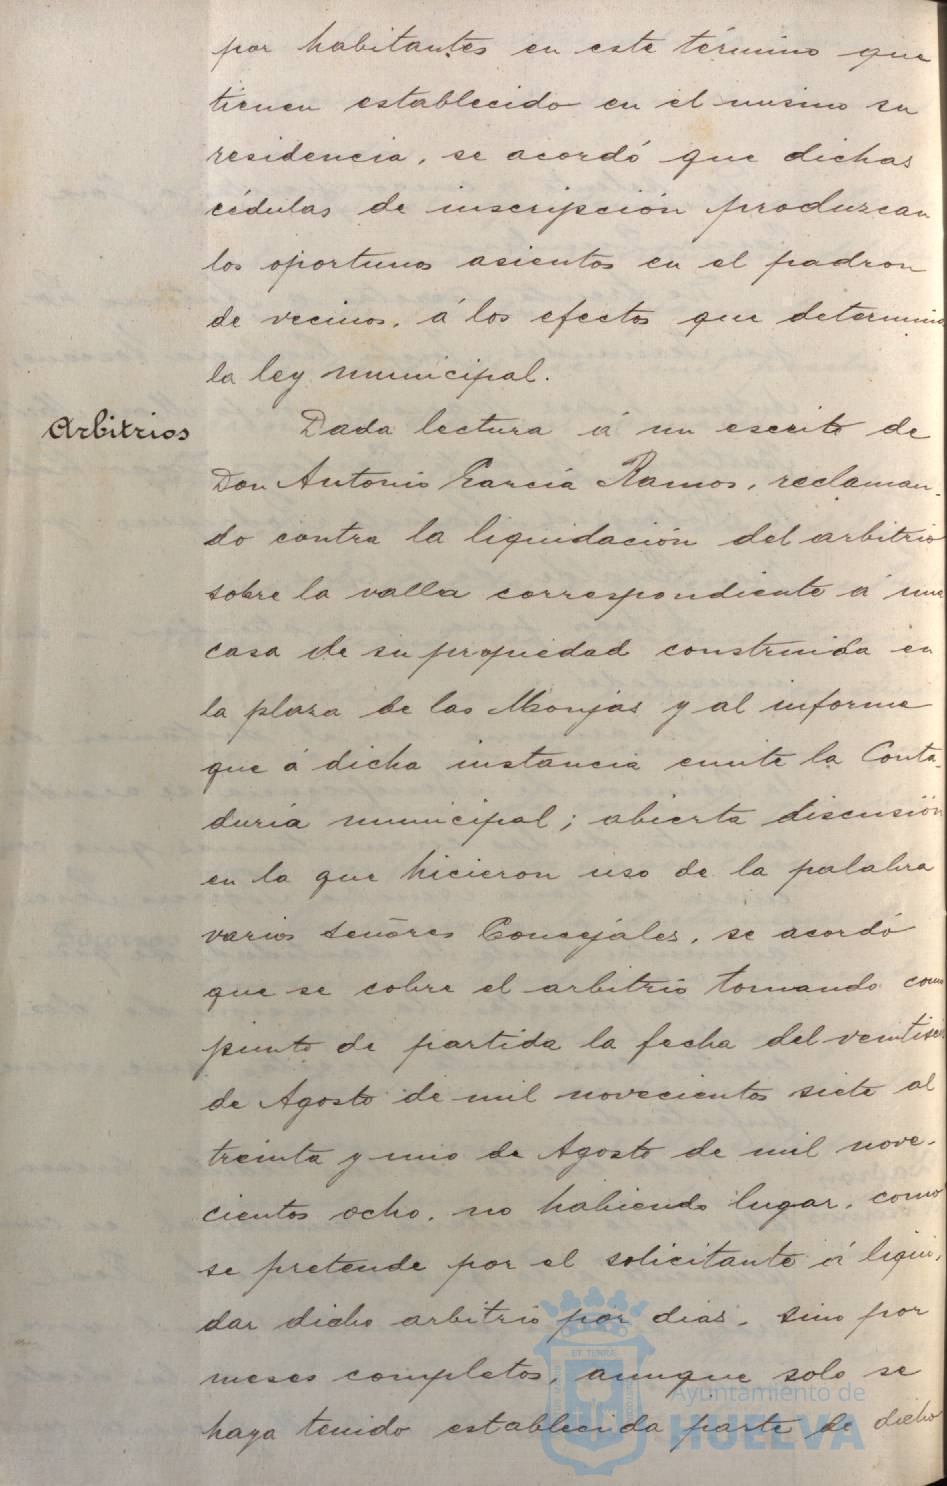 por habitantes en este término que
tienen establecido en el mismo su
residencia, se acordó que dichas
cédulas de inscripción produzcan
los oportunos asientos en el padron
de vecinos, á los efectos que determina
la ley municipal.
Arbitrios Dada lectura á un escrito de
Don Antonio García Ramos, reclaman-
do contra la liquidación del arbitrio
sobre la valla correspondiente á una
casa de su propiedad construida en
la plaza de las Monjas y al informe
que á dicha instancia emite la Conta-
duria municipal; abierta discusión
en la que hicieron uso de la palabra
varios señores Concejales, se acordó
que se cobre el arbitrio tomando como
punto de partida la fecha del veintiseis
de Agosto de mil novecientos siete al
treinta y uno de Agosto de mil nove-
cientos ocho, no habiendo lugar, como
se pretende por el solicitante á liqui-
dar dicho arbitrio por dias, sino por
meses completos, aunque solo se
haya tenido establecida parte de dicho
ET TERRA
Ayuntamiento de
HUELVA